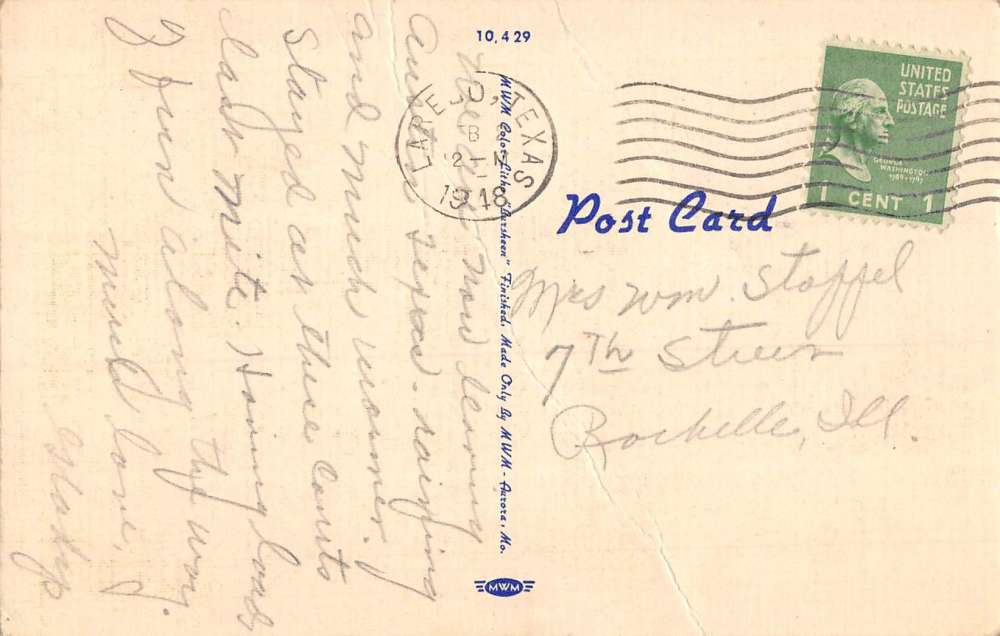 10,429
LAREDO, TEXAS
1948
UNITED
STATES
POSTAGE
GEORGE
WASHINGTON
1789-1797
1 CENT 1
Post Card
Mrs Wm. Stoffel
7th Street
Rochelle, Ill.
MWM Color-Litho "Dursheen" Finished. Made Only By MWM - Aurora, Mo.
MWM
now leaving
Austin Texas. raining
and much warmer.
Stayed at these courts
last nite. Having loads
of fun along the way.
Much love,
Gladys